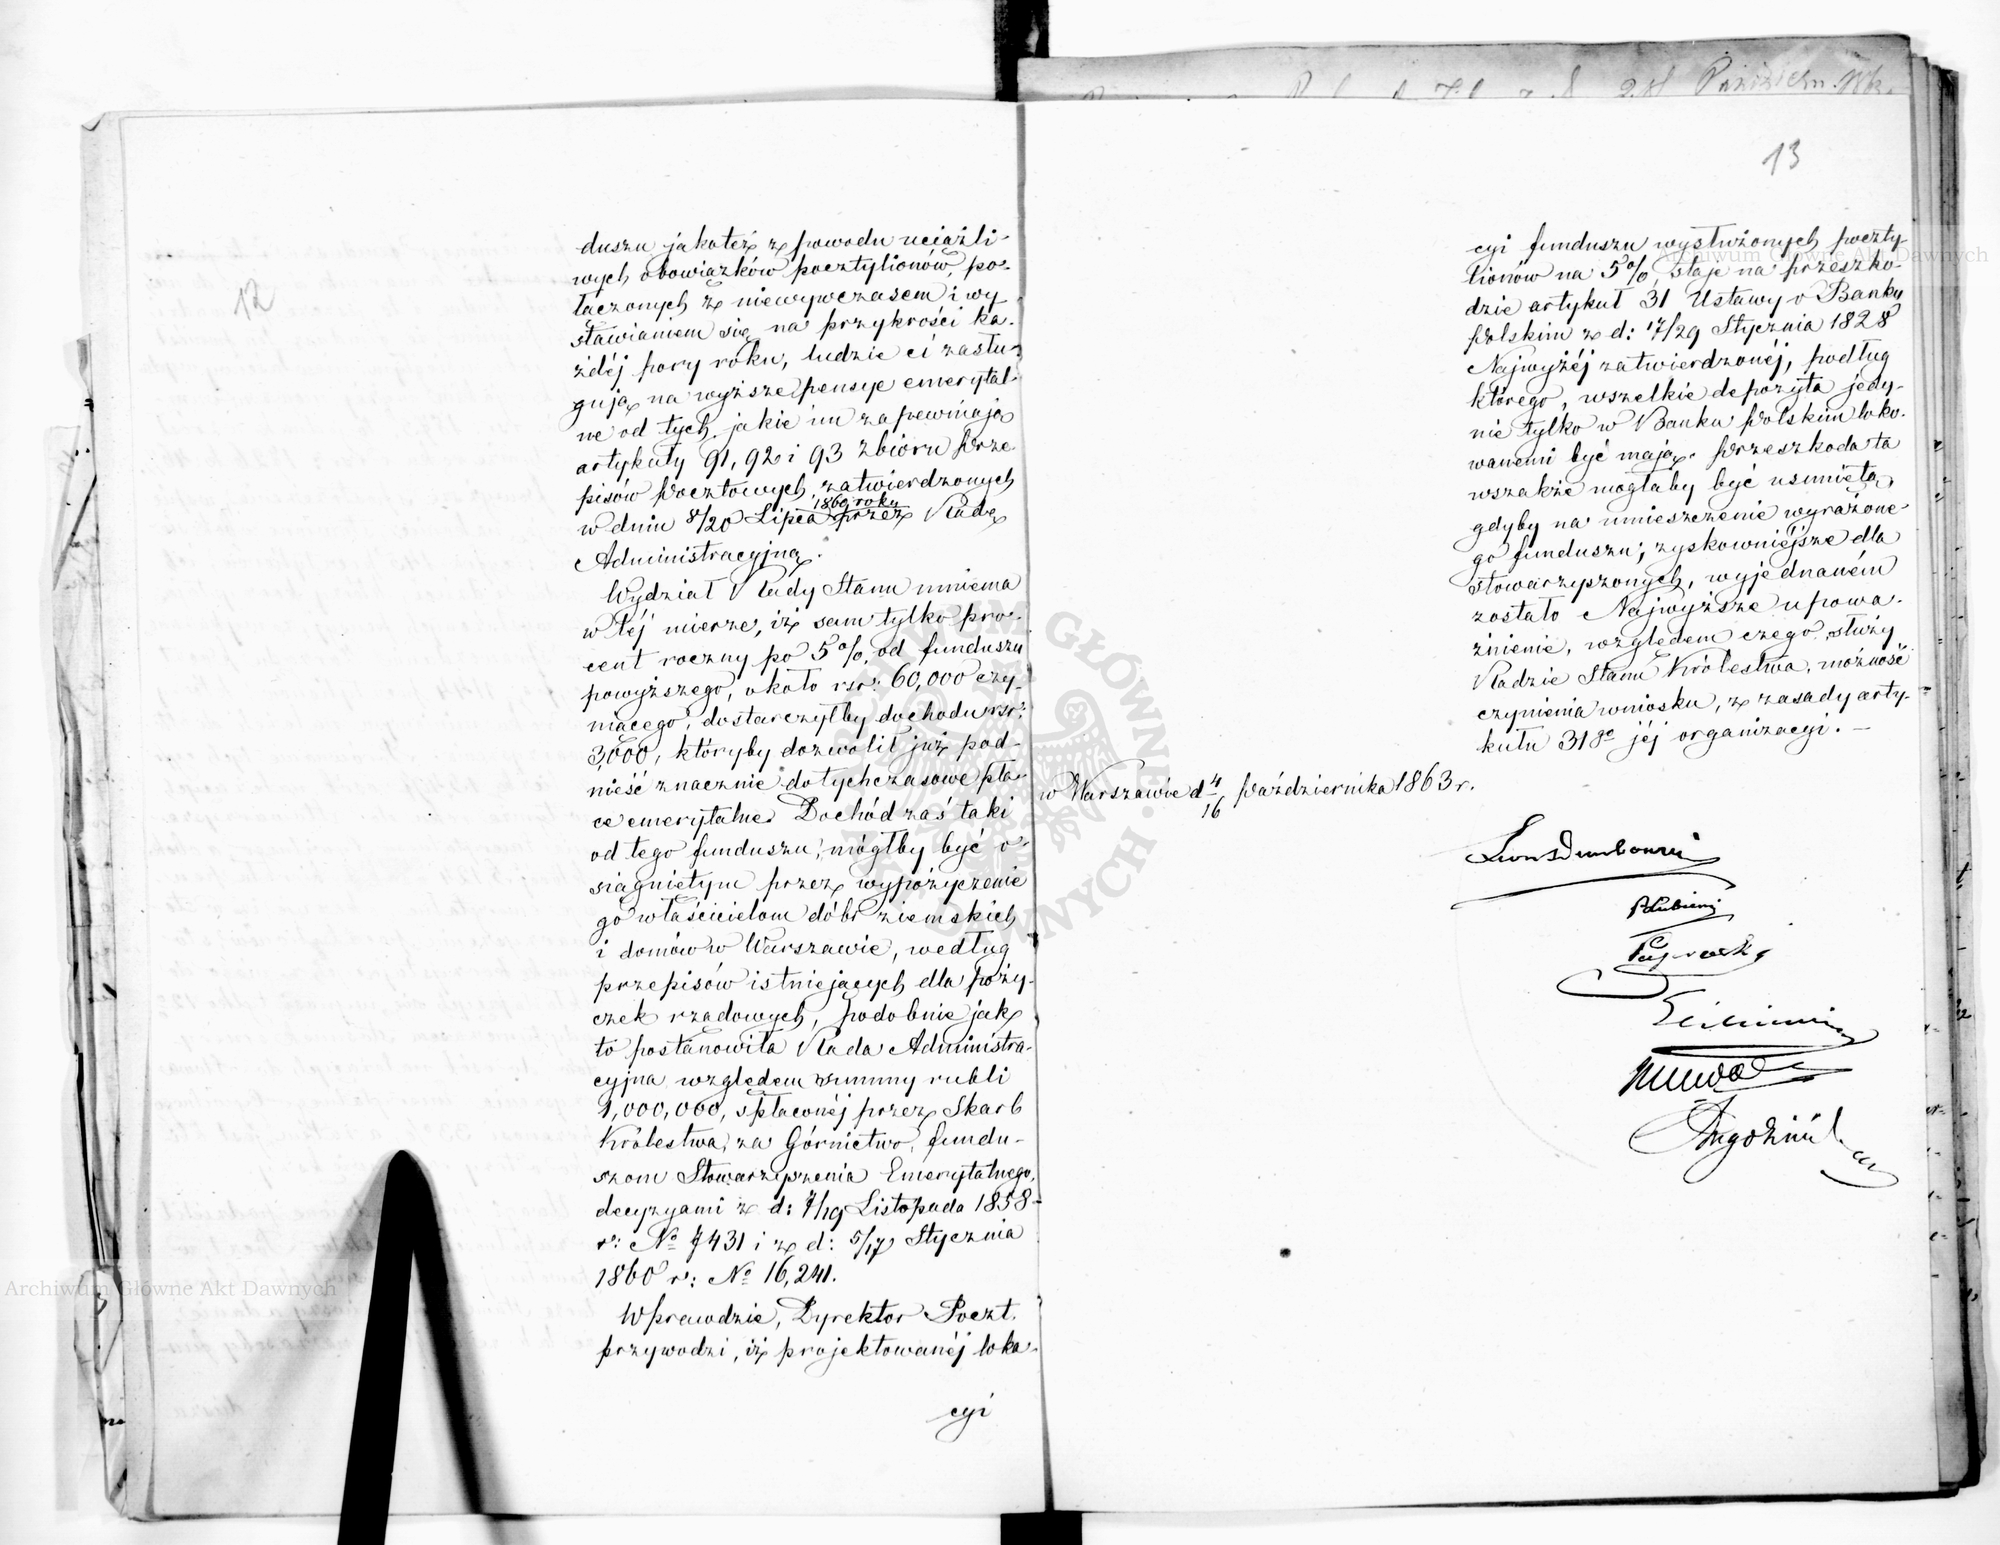 12
duszu jakoteż z powodu uciążli-
wych obowiązków pocztylionów, po-
łączonych z niewywczasem i wy
stawianiem się na przykrości ka-
żdéj pory roku, ludzie ci zasłu-
gują na wyższe pensye emerytal-
ne od tych, jakie im zapewniają
artykuły 91, 92 i 93 Zbioru Prze
pisów Pocztowych zatwierdzonych
1860 roku
w dniu 8/20 Lipca przez Radę
Administracyjną.
Wydział Rady Stanu mniema
w téj mierze, iż sam tylko pro-
cent roczny po 5%, od funduszu
powyższego, około rsr: 60,000 czy-
niącego, dostarczyłby dochodu rsr:
3,000, któryby dozwolił już pod-
nieść znacznie dotychczasowe pła-
ce emerytalne. Dochód zaś taki
od tego funduszu, mógłby być o-
siągniętym przez wypożyczenie
go właścicielom dóbr ziemskich
i domów w Warszawie, według
przepisów istniejących dla poży-
czek rządowych, podobnie jak
to postanowiła Rada Administra-
cyjna względem summy rubli
1,000,000, spłaconéj przez Skarb
Królestwa, za Górnictwo, fundu-
szom Stowarzyszenia Emerytalnego,
decyzyami z d: 7/19 Listopada 1858
r: No 7431 i z d: 5/17 Stycznia
1860 r: No 16,241.
Wprawdzie, Dyrektor Poczt
przywodzi, iż projektowanéj loka-
cyi
Październ. 186
13
cyi funduszu wysłużonych poczty-
lionów na 5%, staje na przeszko-
dzie artykuł 31 Ustawy o Banku
Polskim z d: 17/29 Stycznia 1828
Najwyżéj zatwierdzonéj, podług
którego, wszelkie depozyta jedy-
nie tylko w Banku Polskim loko-
wanemi być mają. Przeszkoda ta
wszakże mogłaby być usuniętą,
gdyby na umieszczenie wyrażone-
go funduszu, zyskowniejsze dla
stowarzyszonych, wyjednaném
zostało Najwyższe upowa-
żnienie, względem czego służy
Radzie Stanu Królestwa, możność
czynienia wniosku, z zasady arty-
kułu 31go jéj organizacyi. –
w Warszawie d 4/16 Października 1863 r.
Archiwum Główne Akt Dawnych
Archiwum Główne Akt Dawnych
ARCHIWUM GŁÓWNE AKT DAWNYCH